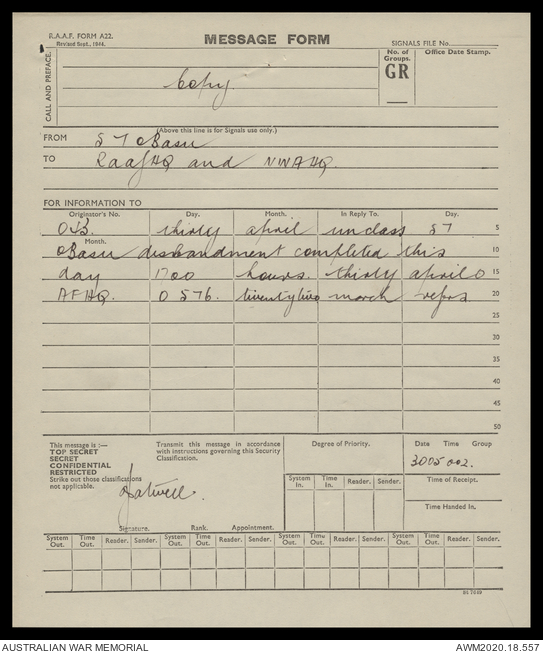 R.A.A.F. FORM A22.
Revised Sept., 1944.
MESSAGE FORM
SIGNALS FILE No.
CALL AND PREFACE.
Copy
No. of Groups.
GR
Office Date Stamp.
(Above this line is for Signals use only.)
FROM 57 OBasu
TO RaafHQ and NWAHQ.
FOR INFORMATION TO
Originator's No. Day. Month. In Reply To. Day.
thirty april unclass 57 5
Month.
OBasu disbandment completed this 10
day 1700 hours. thirty april 15
AFHQ. 0576. twentytwo march refers 20
25
30
35
40
45
50
This message is :—
TOP SECRET
SECRET
CONFIDENTIAL
RESTRICTED
Strike out those classifications
not applicable.
Transmit this message in accordance
with instructions governing this Security
Classification.
Signature. Rank. Appointment.
Degree of Priority.
System In. Time In. Reader. Sender.
Date Time Group
300500Z.
Time of Receipt.
Time Handed In.
System Out. Time Out. Reader. Sender. System Out. Time Out. Reader. Sender. System Out. Time Out. Reader. Sender. System Out. Time Out. Reader. Sender.
AUSTRALIAN WAR MEMORIAL
AWM2020.18.557